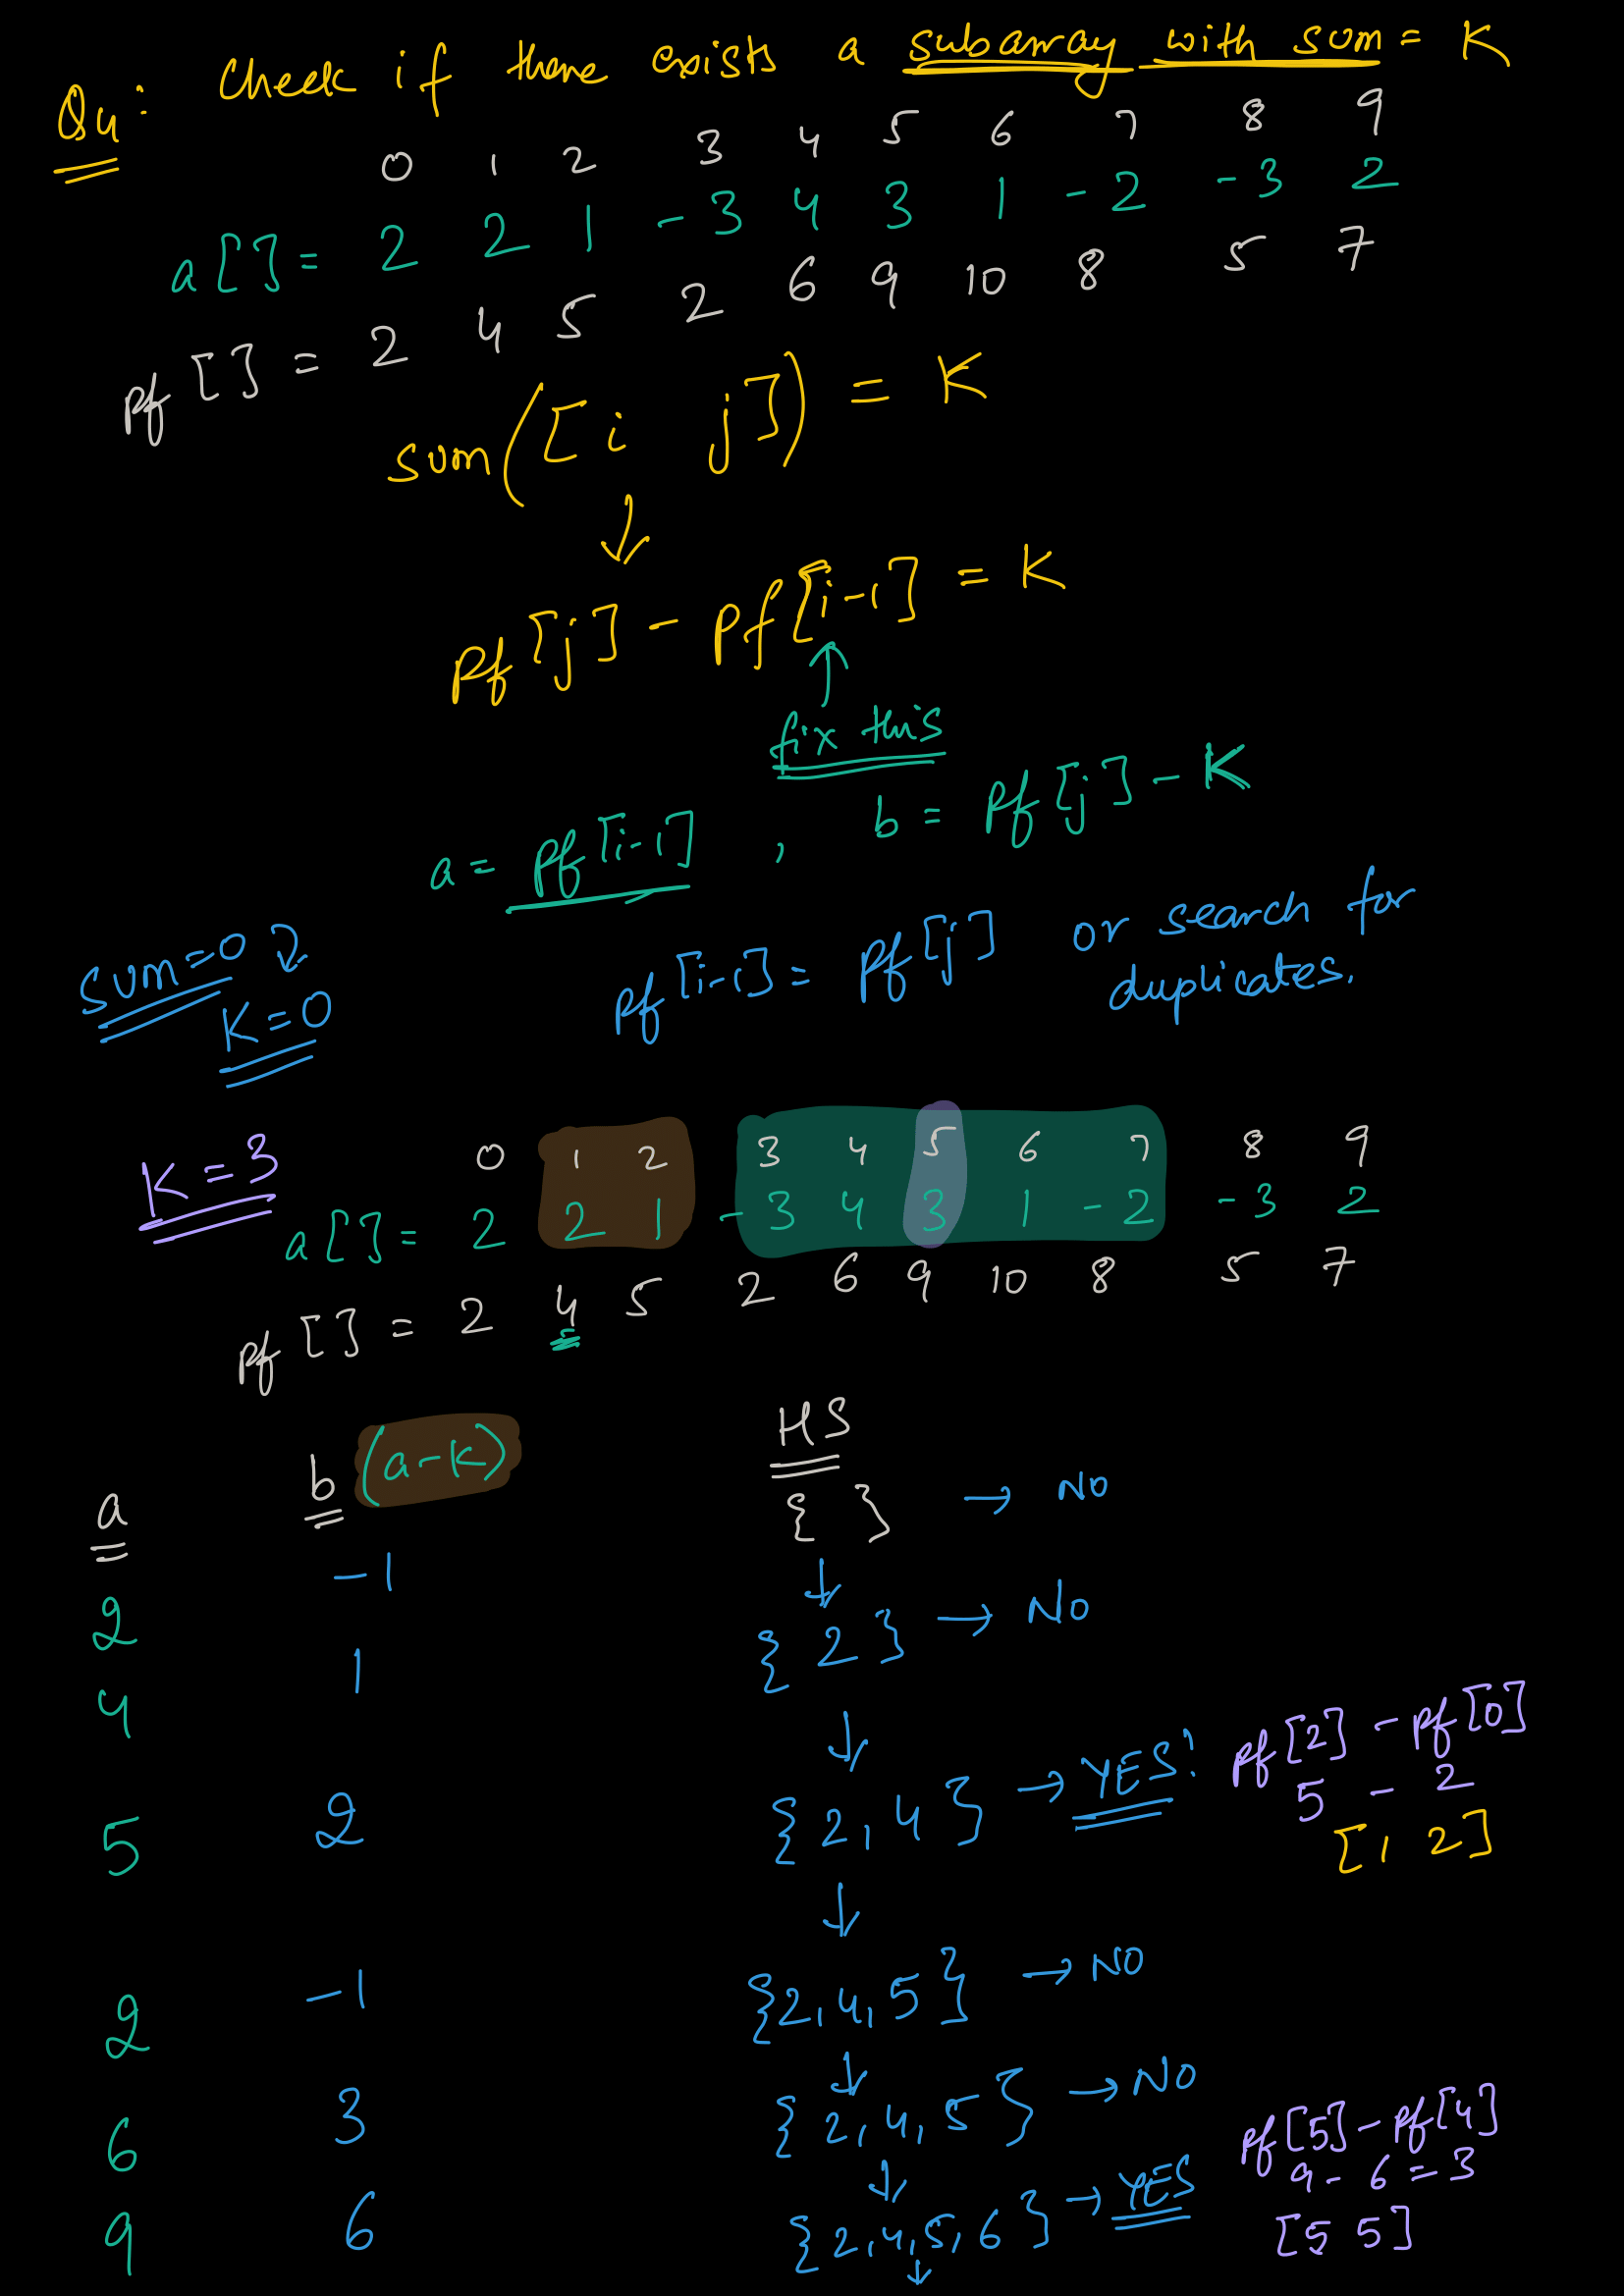 Q4: Check if there exists a subarray with sum = K
0 1 2 3 4 5 6 7 8 9
a[] = 2 2 1 -3 4 3 1 -2 -3 2
pf[] = 2 4 5 2 6 9 10 8 5 7
sum([i j]) = K
↓
pf[j] - pf[i-1] = K
↑
fix this
a = pf[i-1] , b = pf[j] - K
sum=0
K=0
pf[i-1] = pf[j] or search for
duplicates.
K=3
0 1 2 3 4 5 6 7 8 9
a[] = 2 2 1 -3 4 3 1 -2 -3 2
pf[] = 2 4 5 2 6 9 10 8 5 7
a b (a-K) HS
{ } → NO
2 -1
↓
{2} → NO
4 1
↓
{2,4} → YES! pf[2] - pf[0]
5 - 2
[1 2]
5 2
↓
{2,4,5} → NO
2 -1
↓
{2,4,5} → NO
6 3
↓
{2,4,5,6} → YES pf[5] - pf[4]
9 - 6 = 3
[5 5]
9 6
↓